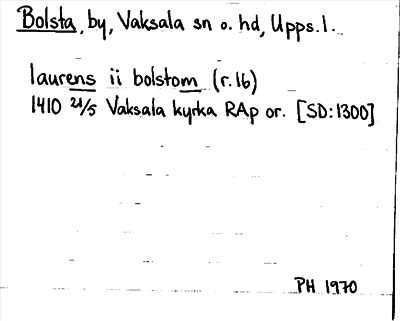 Bolsta, by, Vaksala sn o. hd, Upps. l.
laurens ii bolstom (r. 16)
1410 21/5 Vaksala kyrka RAp or. [SD: 1300]
PH 1970